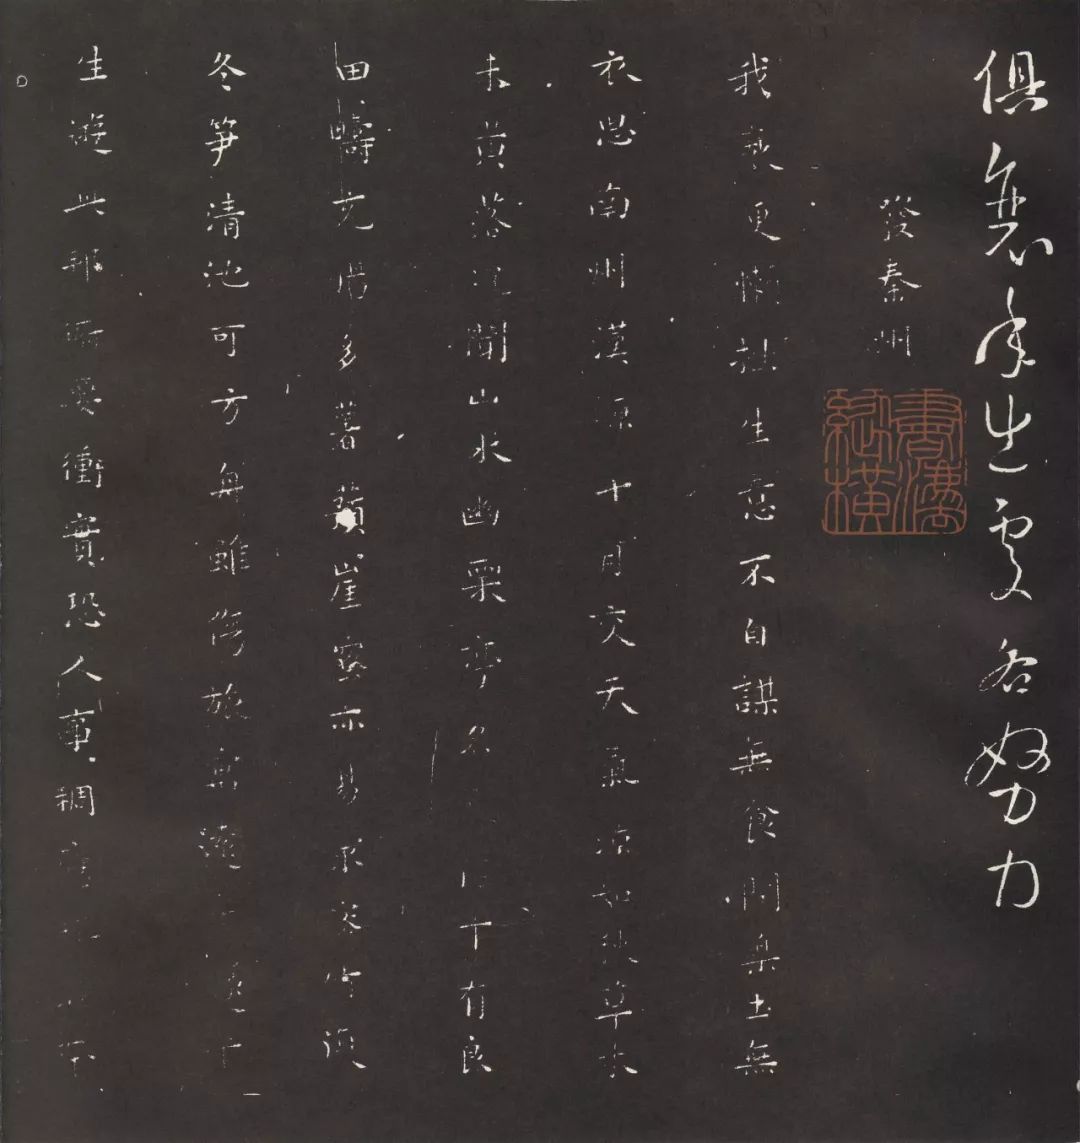 俱衰年出處各努力
發秦州
我衰更懶拙生意不自謀無食問樂土無
衣思南州漢源十月交天氣涼如秋草木
未黃落況聞山水幽栗亭名下有良
田疇充腸多薯蕷崖蜜亦易求竹復
冬笋清池可方舟雖傷旅寓遠
生遊此邦要衝實恐人事稠本